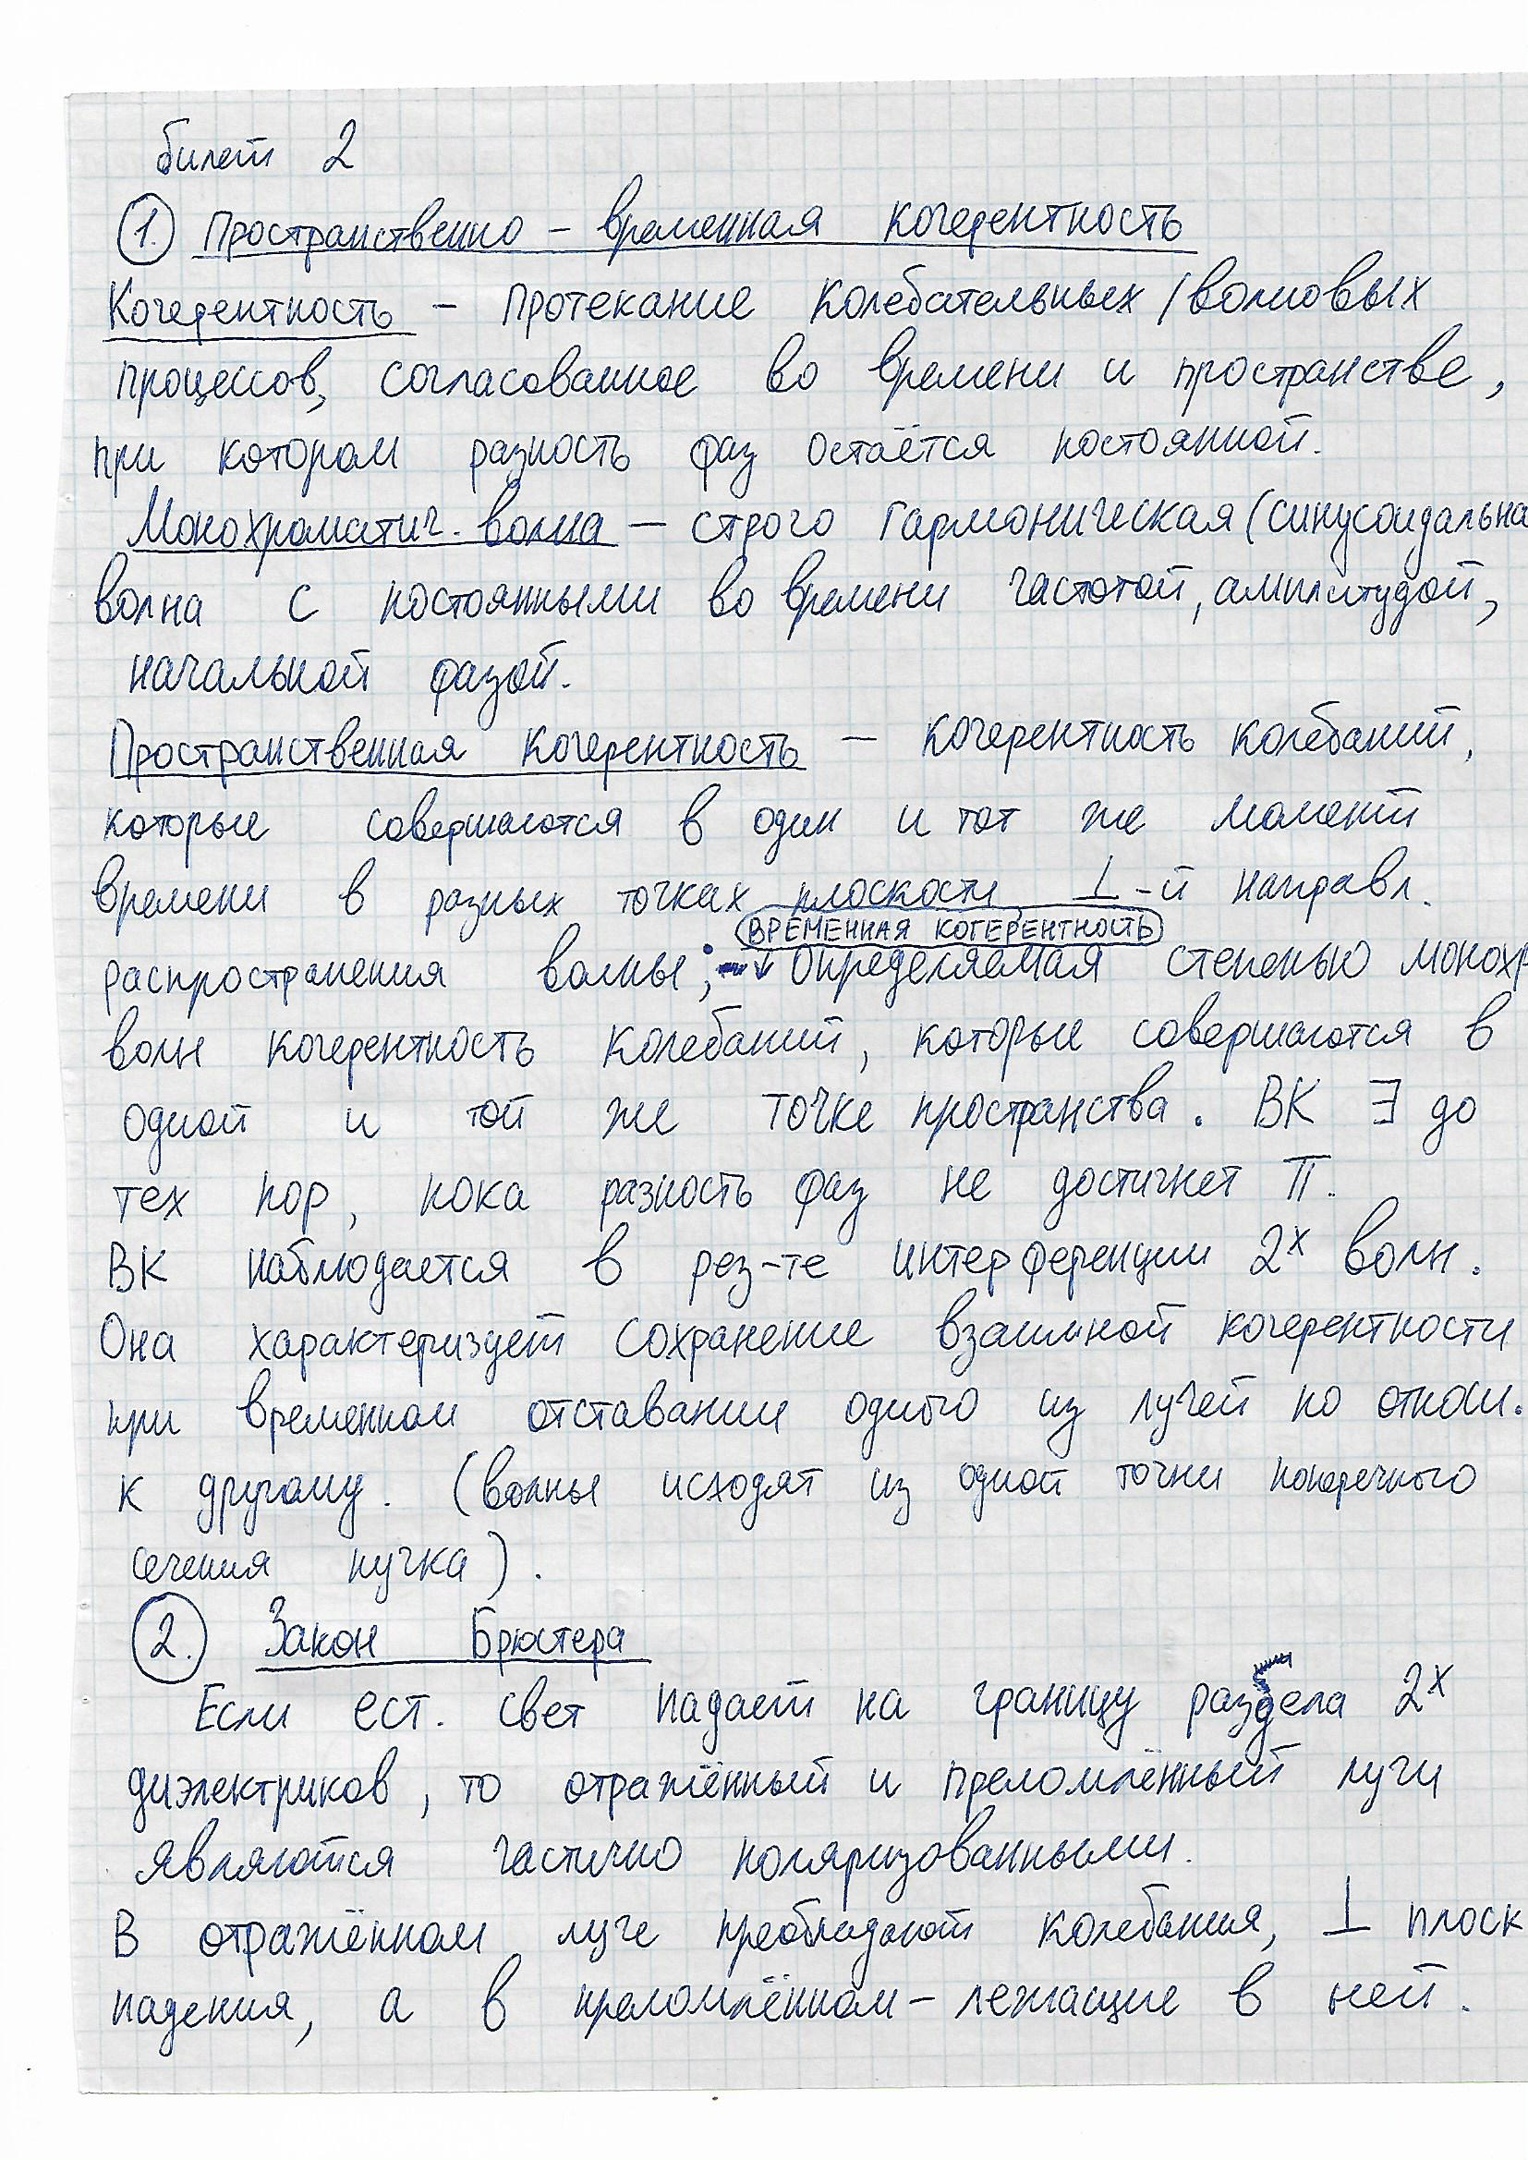 билет 2
1. Пространственно – временная когерентность
Когерентность – протекание колебательных / волновых
процессов, согласованное во времени и пространстве,
при котором разность фаз остаётся постоянной.
Монохроматич. волна – строго гармоническая (синусоидальна
волна с постоянными во времени частотой, амплитудой,
начальной фазой.
Пространственная когерентность – когерентность колебаний,
которые совершаются в один и тот же момент
времени в разных точках плоскости, ⊥-й направл.
ВРЕМЕННАЯ КОГЕРЕНТНОСТЬ
распространения волны; ↓ определяемая степенью монохр
волн когерентность колебаний, которые совершаются в
одной и той же точке пространства. ВК ∃ до
тех пор, пока разность фаз не достигнет π.
ВК наблюдается в рез-те интерференции 2х волн.
Она характеризует сохранение взаимной когерентности
при временном отставании одного из лучей по отнош.
к другому. (волны исходят из одной точки поперечного
сечения пучка).
2. Закон Брюстера
Если ест. свет падает на границу раздела 2х
диэлектриков, то отражённый и преломлённый лучи
являются частично поляризованными.
В отражённом луче преобладают колебания, ⊥ плоск
падения, а в преломлённом – лежащие в ней.